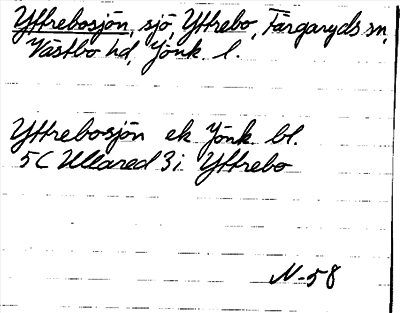 Yttrebosjön, sjö, Yttrebo, Färgaryds sn,
Västbo hd, Jönk. l.
Yttrebosjön ek Jönk bl.
5C Ullared 3i Yttrebo
N-58